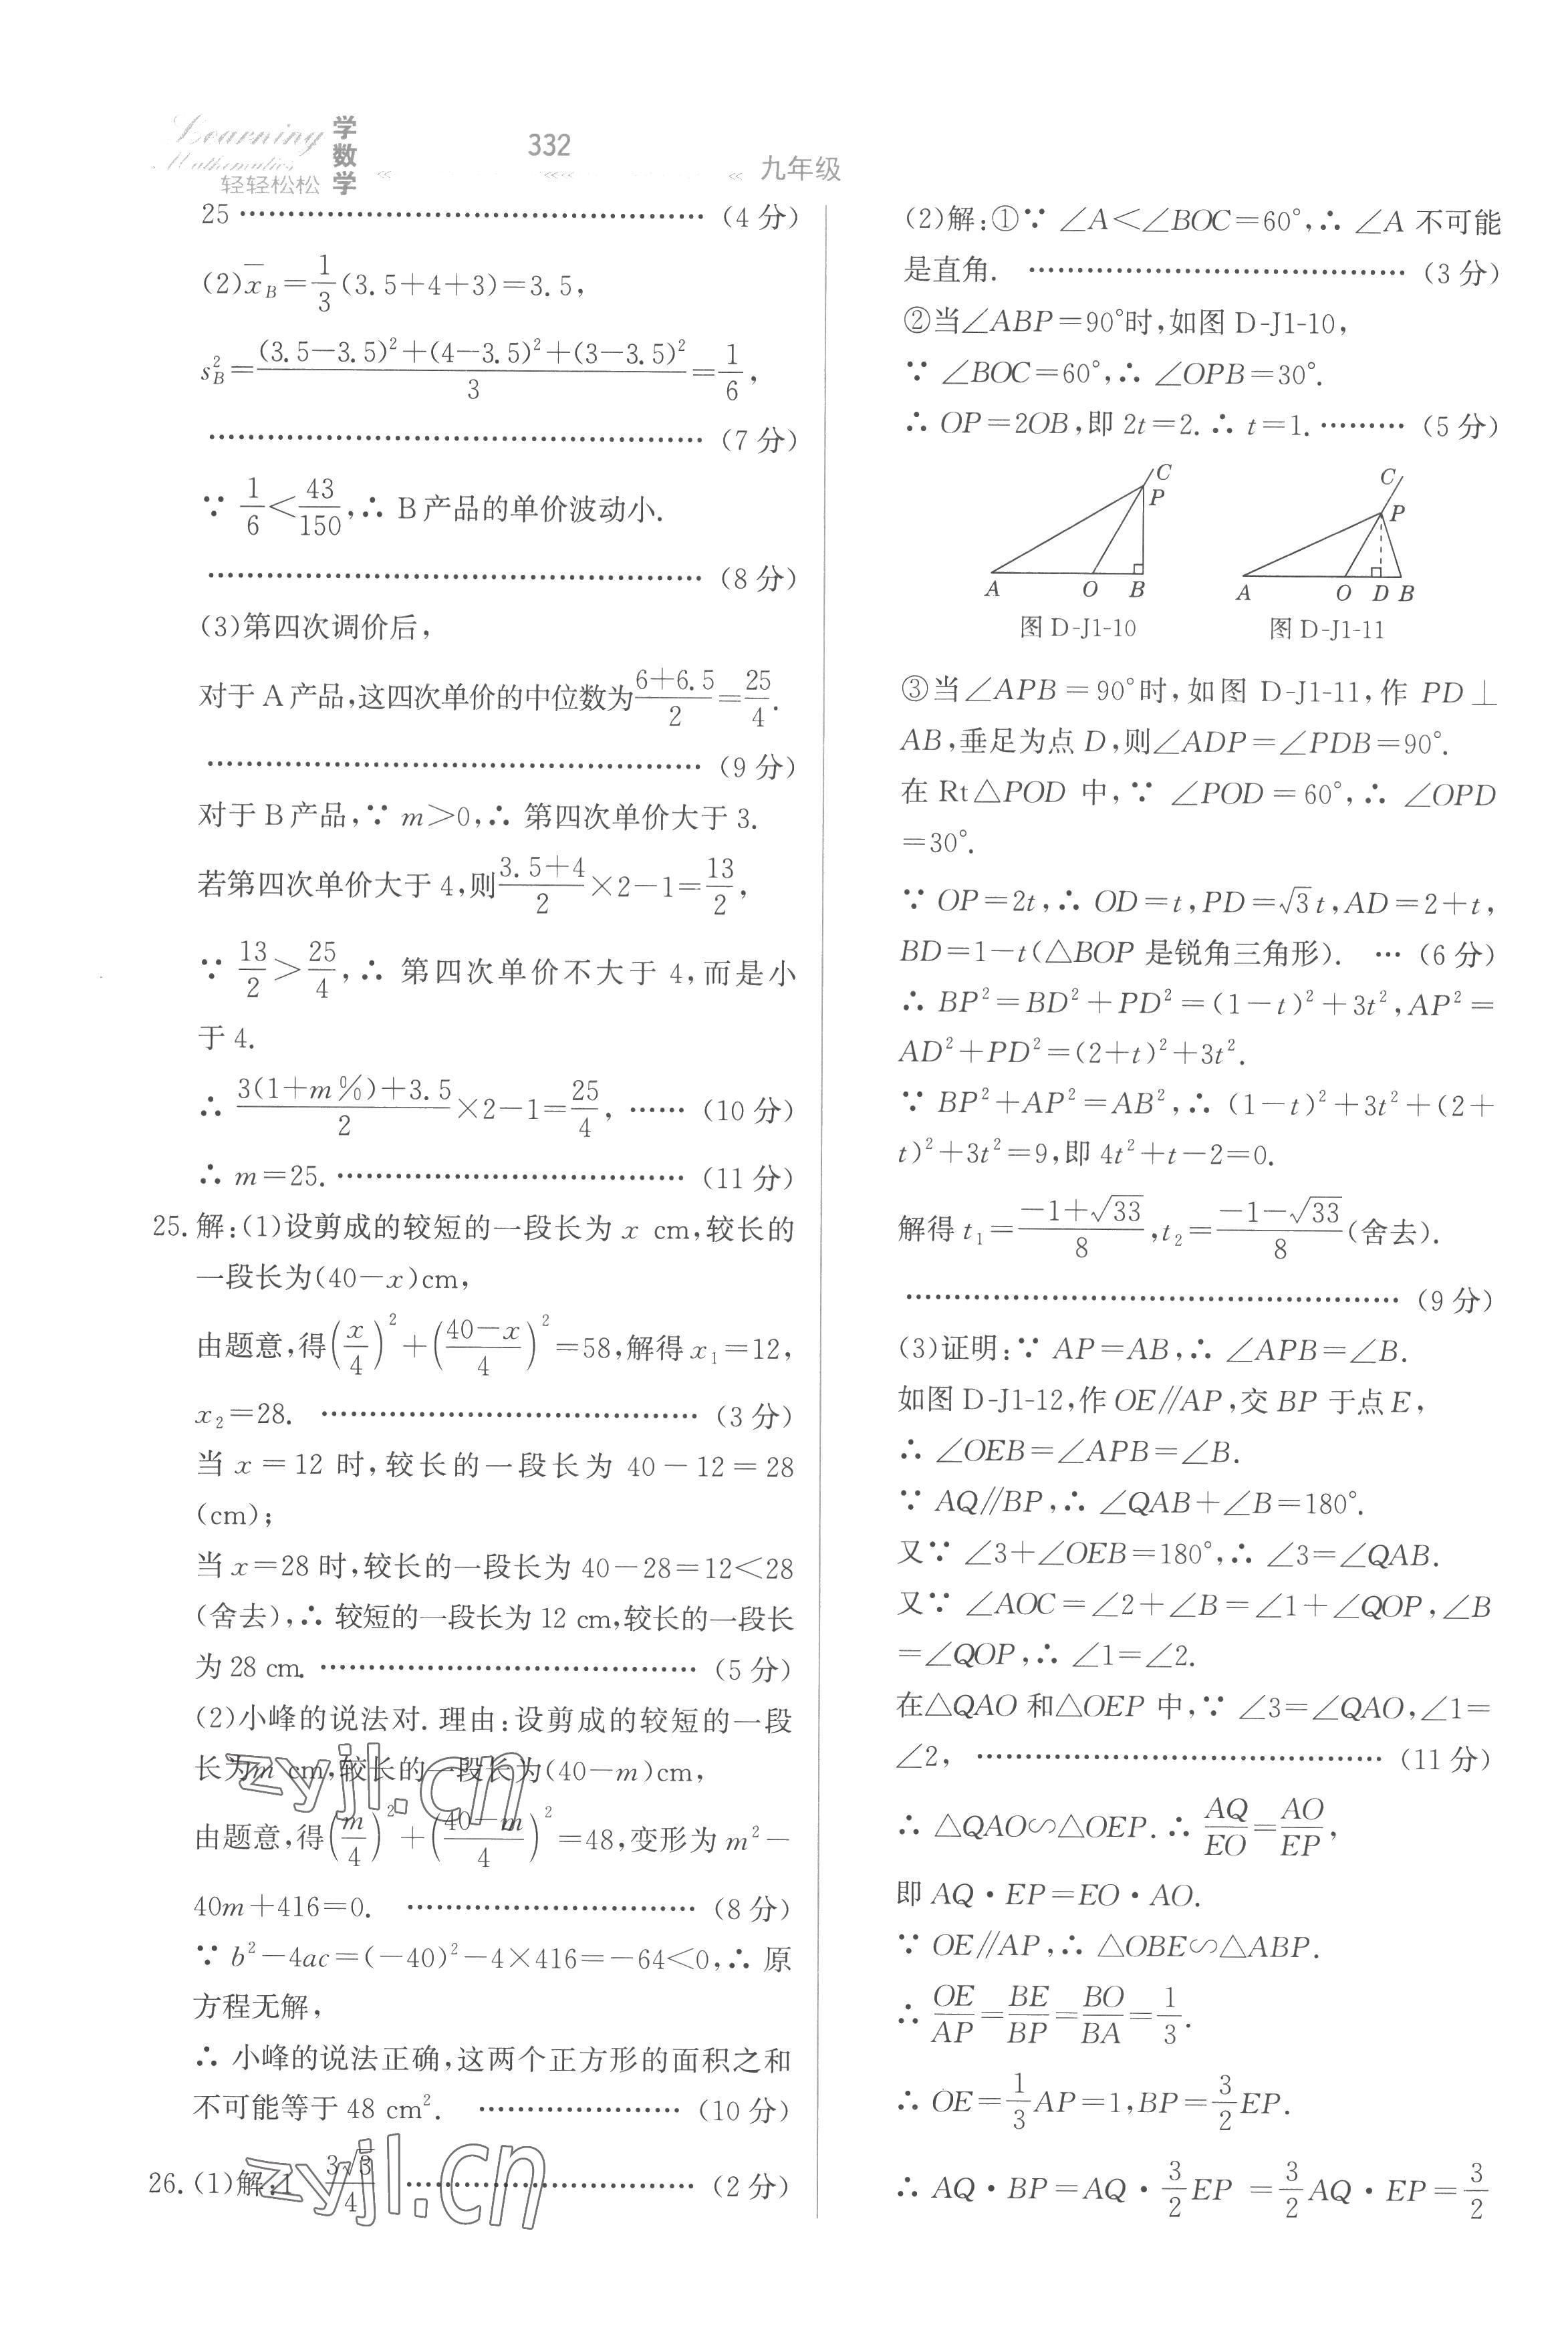 Learning
Mathematics
轻轻松松
学数学
332
九年级
25 ……………………………………… (4 分)
(2)x̄_B=1/3(3.5+4+3)=3.5,
s²_B=[(3.5-3.5)²+(4-3.5)²+(3-3.5)²]/3=1/6,
……………………………………… (7 分)
∵ 1/6<43/150,∴ B产品的单价波动小.
……………………………………… (8 分)
(3)第四次调价后,
对于 A 产品,这四次单价的中位数为(6+6.5)/2=25/4.
……………………………………… (9 分)
对于 B产品,∵ m>0,∴ 第四次单价大于 3.
若第四次单价大于 4,则(3.5+4)/2×2-1=13/2,
∵ 13/2>25/4,∴ 第四次单价不大于 4,而是小
于 4.
∴ [3(1+m%)+3.5]/2×2-1=25/4, …… (10 分)
∴ m=25. ……………………………… (11 分)
25. 解:(1)设剪成的较短的一段长为 x cm,较长的
一段长为(40-x)cm,
由题意,得(x/4)²+((40-x)/4)²=58,解得 x₁=12,
x₂=28. ……………………………… (3 分)
当 x=12 时,较长的一段长为 40-12=28
(cm);
当 x=28 时,较长的一段长为 40-28=12<28
(舍去),∴ 较短的一段长为 12 cm,较长的一段长
为 28 cm. ……………………………… (5 分)
(2)小峰的说法对. 理由:设剪成的较短的一段
长为m cm,较长的一段长为(40-m)cm,
由题意,得(m/4)²+((40-m)/4)²=48,变形为 m²-
40m+416=0. ………………………… (8 分)
∵ b²-4ac=(-40)²-4×416=-64<0,∴ 原
方程无解,
∴ 小峰的说法正确,这两个正方形的面积之和
不可能等于 48 cm². ………………… (10 分)
26. (1)解:1 3√3/4 ………………………… (2 分)
(2)解:①∵ ∠A<∠BOC=60°,∴ ∠A 不可能
是直角. ……………………………… (3 分)
②当∠ABP=90°时,如图 D-J1-10,
∵ ∠BOC=60°,∴ ∠OPB=30°.
∴ OP=2OB,即 2t=2. ∴ t=1. ……… (5 分)
C
P
A
O
B
图 D-J1-10
C
P
A
O
D
B
图 D-J1-11
③当∠APB=90°时,如图 D-J1-11,作 PD⊥
AB,垂足为点 D,则∠ADP=∠PDB=90°.
在 Rt△POD 中,∵ ∠POD=60°,∴ ∠OPD
=30°.
∵ OP=2t,∴ OD=t,PD=√3t,AD=2+t,
BD=1-t(△BOP 是锐角三角形). … (6 分)
∴ BP²=BD²+PD²=(1-t)²+3t²,AP²=
AD²+PD²=(2+t)²+3t².
∵ BP²+AP²=AB²,∴ (1-t)²+3t²+(2+
t)²+3t²=9,即 4t²+t-2=0.
解得 t₁=(-1+√33)/8,t₂=(-1-√33)/8(舍去).
……………………………………… (9 分)
(3)证明:∵ AP=AB,∴ ∠APB=∠B.
如图 D-J1-12,作 OE∥AP,交 BP 于点 E,
∴ ∠OEB=∠APB=∠B.
∵ AQ∥BP,∴ ∠QAB+∠B=180°.
又∵ ∠3+∠OEB=180°,∴ ∠3=∠QAB.
又∵ ∠AOC=∠2+∠B=∠1+∠QOP,∠B
=∠QOP,∴ ∠1=∠2.
在△QAO 和△OEP 中,∵ ∠3=∠QAO,∠1=
∠2, ………………………………… (11 分)
∴ △QAO∽△OEP. ∴ AQ/EO=AO/EP,
即 AQ·EP=EO·AO.
∵ OE∥AP,∴ △OBE∽△ABP.
∴ OE/AP=BE/BP=BO/BA=1/3.
∴ OE=1/3AP=1,BP=3/2EP.
∴ AQ·BP=AQ·3/2EP =3/2AQ·EP=3/2
zyjl.cn
zyjl.cn